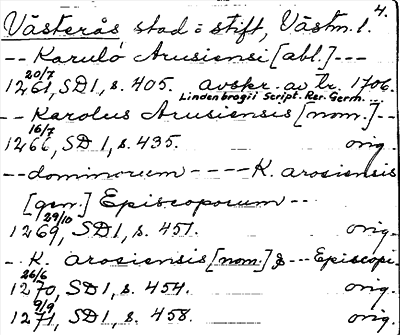 4.
Västerås stad o stift, Västm. l.
-- Karulo Arusiensi [abl.] ---
20/7
1261, SD 1, s. 405. avskr. av tr. 1706.
Lindenbrogii Script. Rer. Germ.
-- Karolus Arusiensis [nom.] --
16/7
1266, SD 1, s. 435. orig.
-- dominorum ---- K. arosiensis
[gen.] Episcoporum --
29/10
1269, SD 1, s. 451. orig.
- K. arosiensis [nom.] --- Episcopi -
26/6
1270, SD 1, s. 454. orig.
9/9
1271, SD 1, s. 458. orig.